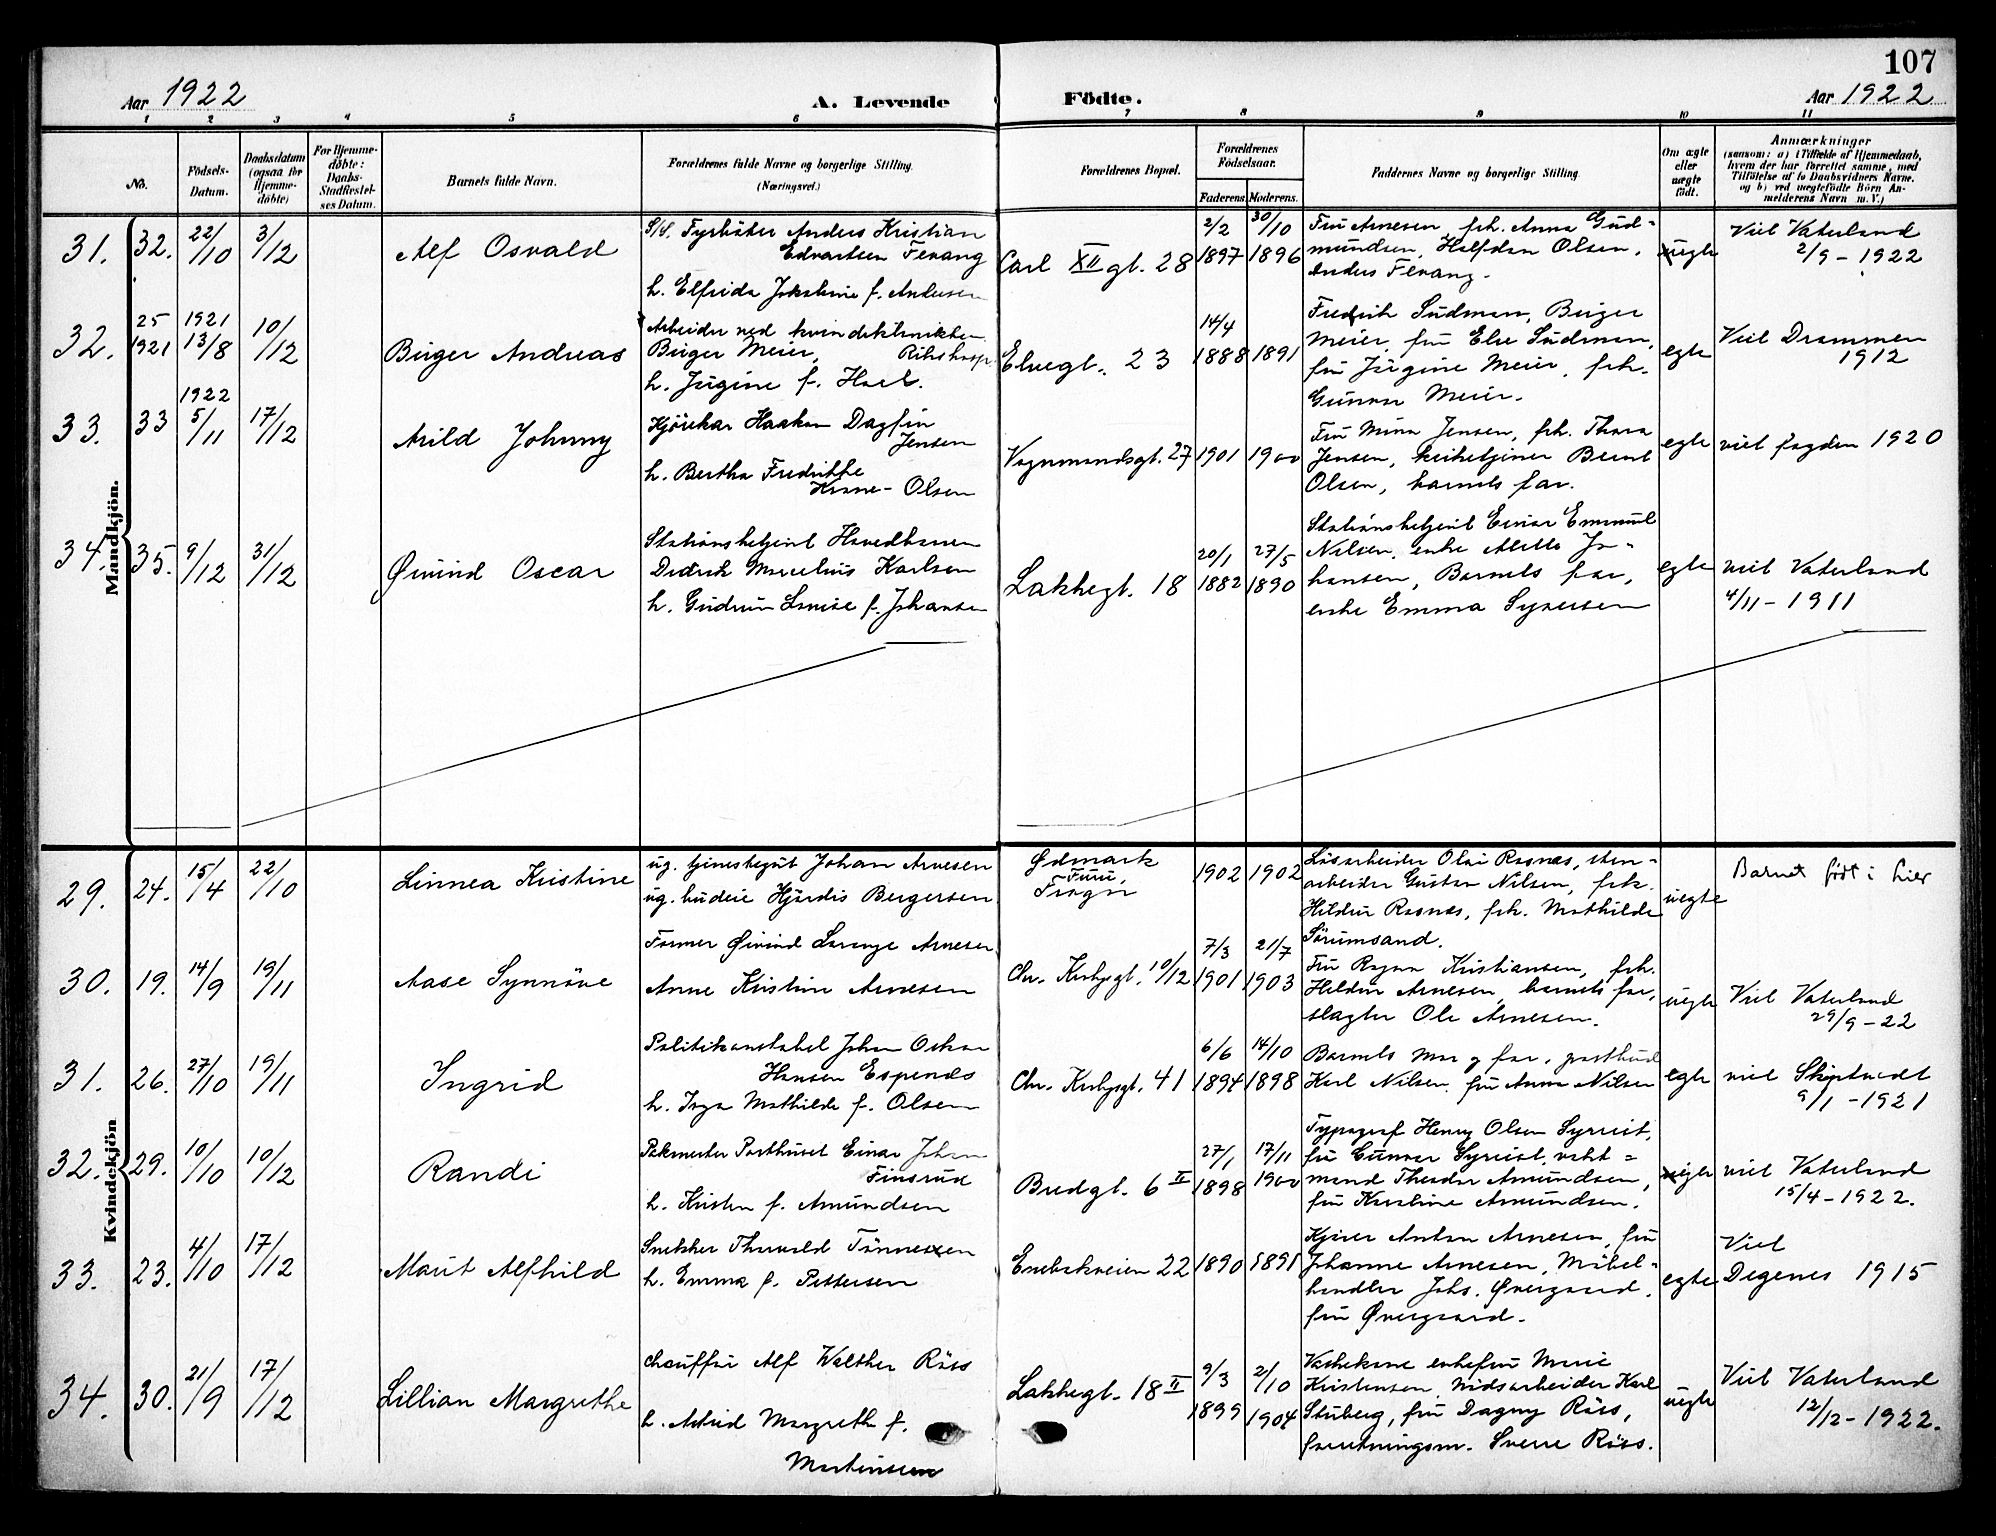 107
Aar 1922 A. Levende Födte. Aar 1922
1 2 3 4 5 6 7 8 9 10 11
No. Födsels-Datum. Daabsdatum (ogsaa for Hjemme-döbte) For Hjemme-döbte: Daabs-Stadfæstel-ses Datum. Barnets fulde Navn. Forældrenes fulde Navne og borgerlige Stilling. (Næringsvei.) Forældrenes Bopæl. Forældrenes Födselsaar. Faderens. Moderens. Faddernes Navne og borgerlige Stilling. Om ægte eller uægte født. Anmærkninger
(saasom: a) i Tilfælde af Hjemmedaab,
hvem der har forrettet samme, med
Tilföielse af to Daabsvidners Navne.
og b) ved uægtefödte Börn An-
melderens Navn m. V.)
Mandkjön.
31. 32. 22/10 3/12 Alf Osvald
Fyrböter Anders Kristian
Edvartsen Fevang
h. Elfrida f. Andersen
Carl XII gt. 28
2/2 1897 30/10 1896
Fru Arnesen, frk. Anna Gud-
mundsen, Halfdan Olsen,
Anders Fevang.
uegte
Viet Vaterland
2/9 - 1922
32. 25 1921 1921 13/8 10/12 Birger Andreas
Arbeider ved kvindeklinikken
Birger Meier, Rikshosp.
h. Jügine f.
Elvegt. 23
14/4 1888 1891
Fredrik Sudman, Birger
Meier, fru Else Sudman,
fru Jügine Meier, frk.
Gunvor Meier.
egte
Viet Drammen
1912
33. 33 1922 5/11 17/12 Arild Johnny
Kjörekar Haakon Dagfin
Jensen
h. Bertha Fredrikke
Olsen
Vognmandsgt. 27
1901 1900
Fru Mina Jensen, frk. Thora
Jensen, Bernt
Olsen, barnets far.
egte
viet fogden 1920
34. 35. 9/12 31/12 Øivind Oscar
Stationsbetjent Hovedbanen
Didrik Marcelius Karlsen
h. Gudrun Louise f. Johansen
Lakkegt. 18
20/1 1882 27/5 1890
Stationsbetjent Einar Emanuel
Nielsen, enke Aletta Jo-
hansen, Barnets far,
enke Emma Syversen
egte
viet Vaterland
4/11 - 1911
Kvindekjön
29. 24. 15/4 22/10 Linnea Kristine
ug. tjenestegut Johan Arnesen
ug. budeie Hjördis Bergersen
Ødmark
Frogn
1902 1902
Løsarbeider Olai Rasnes, sten-
arbeider Gustav Nilsen, frk.
Hildur Rasnes, frk. Mathilde
Sörumsand.
uegte
Barnet født i hier
30. 19. 14/9 19/11 Aase Synnöve
Former Øivind Lorange Arnesen
Anne Kristine Arnesen
Chr. Krohgsgt. 10/12
7/3 1901 21/7 1903
Fru Ragna Kristiansen, frk.
Hildur Arnesen, barnets far,
slagter Ole Arnesen.
uegte
Viet Vaterland
29/9 - 22
31. 26. 27/10 19/11 Ingrid
Politikonstabel Johan Oskar
Hansen Espenæs
h. Inga Mathilde f. Olsen
Chr. Krohgsgt. 41
6/6 1894 14/10 1898
Barnets mor og far, postbud
Karl Nilsen, fru Anna Nilsen
egte
viet Skiptvedt
9/1 - 1921
32. 29. 10/10 10/12 Randi
Pakmester Posthuset Einar Johan
Finsrud
h. Kirsten f. Amundsen
Bredgt. 6 II
27/1 1898 17/11 1900
Typograf Henry Olsen Syrrist,
fru Gunvor Syrrist, vakt-
mand Theodor Amundsen,
fru Karoline Amundsen.
uegte
viet Vaterland
15/4 - 1922.
33. 23. 4/10 17/12 Marit Alfhild
Snekker Thorvald Tönnessen
h. Emma f. Pettersen
Enebakveien 22
1890 1891
Kjörer Anton Arnesen, fru
Johanne Arnesen, Möbel-
handler Johs. Øvergaard,
fru Øvergaard.
egte
Viet
Degenes 1915
34. 30. 21/9 17/12 Lillian Margrethe
chaufför Alf Walther Röss
h. Astrid Margreth f.
Martinsen
Lakkegt. 18 II
9/3 1899 2/10 1904
Vaskekone enkefru Marie
Kristensen, Karl
Stuberg, fru Dagny Röss,
forretningsm. Sverre Röss.
uegte
Viet Vaterland
12/12 - 1922.